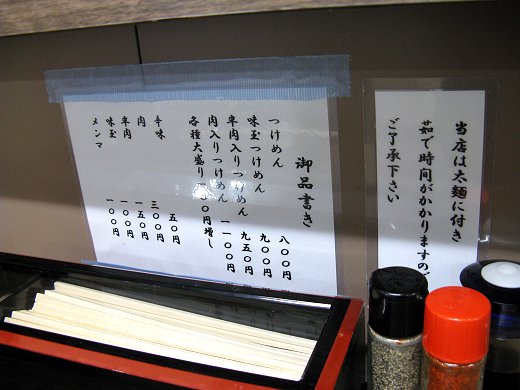 御品書き
つけめん 八〇〇円
味玉つけめん 九〇〇円
半肉入りつけめん 九五〇円
肉入りつけめん 一一〇〇円
各種大盛り一〇〇円増し
辛味 五〇円
肉 三〇〇円
半肉 一五〇円
味玉 一〇〇円
メンマ 一〇〇円
当店は太麺に付き
茹で時間がかかりますので
ご了承下さい